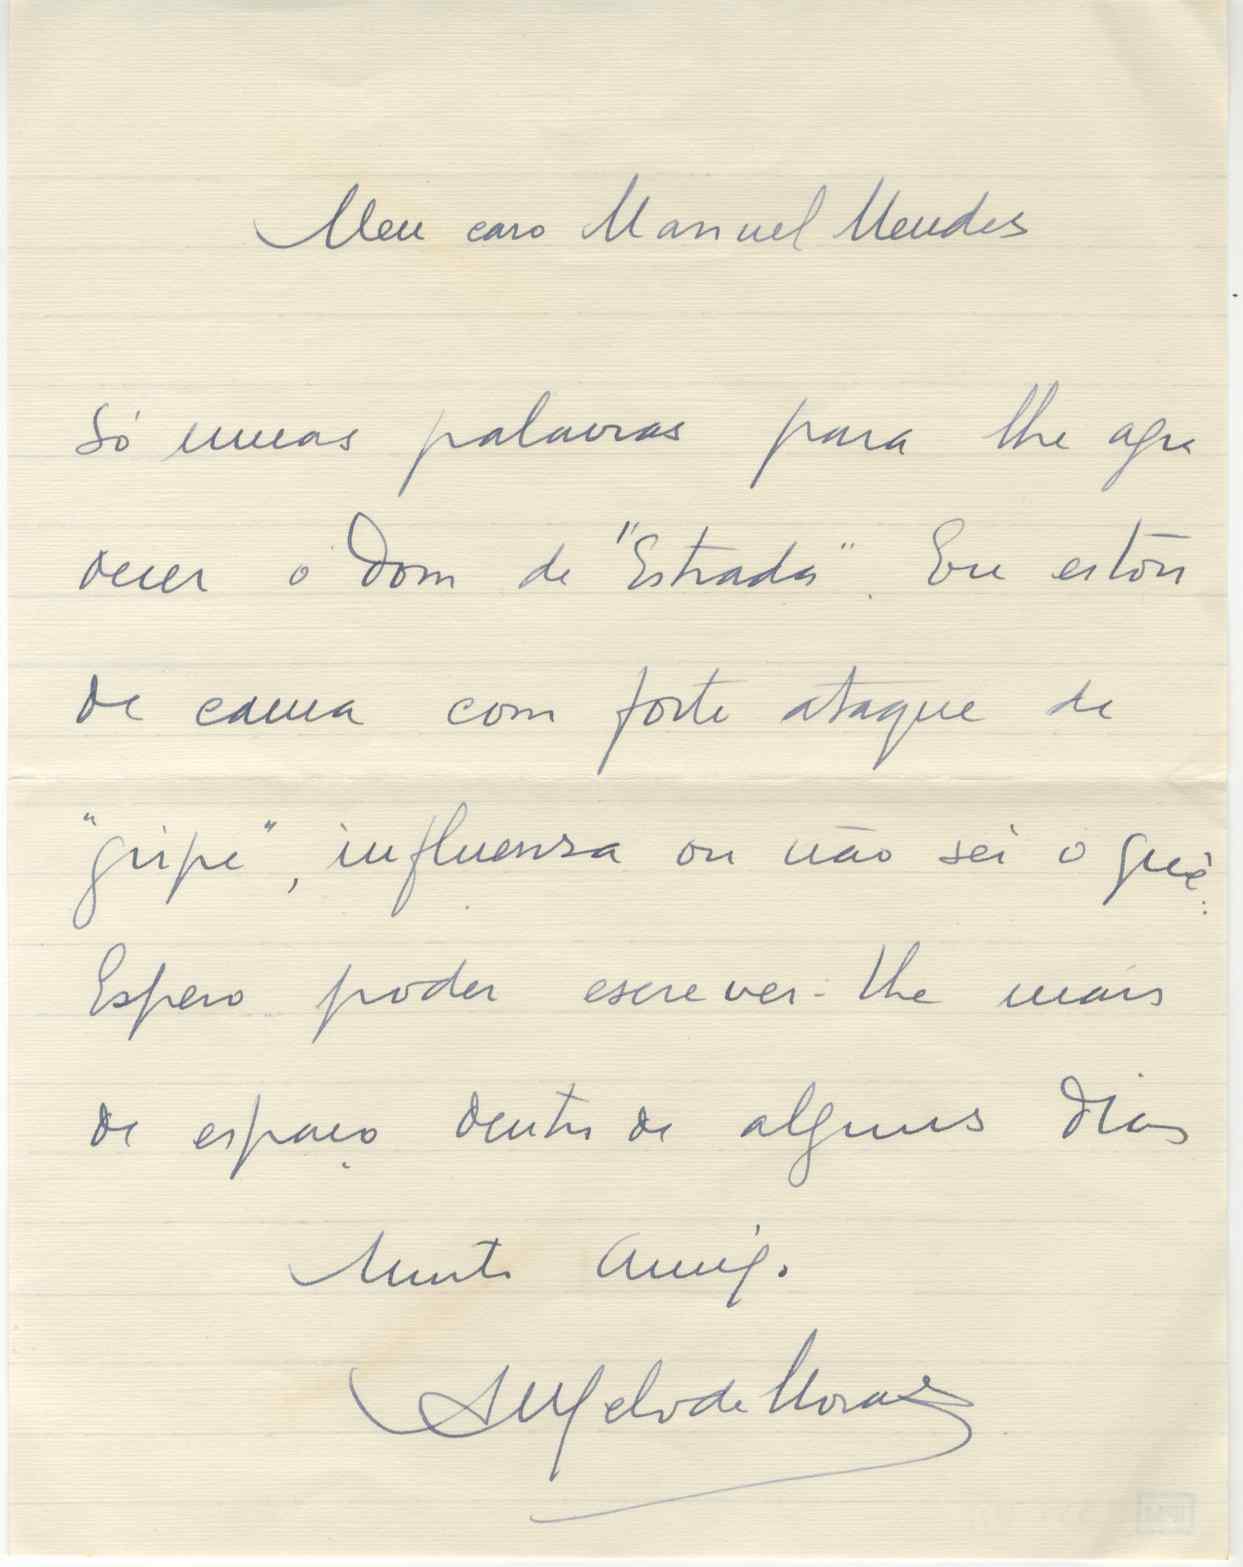 Meu caro Manuel Mendes
Só umas palavras para lhe agra
decer o dom de "Estrada". Eu estou
de cama com forte ataque de
"gripe", influenza ou não sei o quê.
Espero poder escrever-lhe mais
de espaço dentro de alguns dias
Muito Amigo.
Melo de Moraes